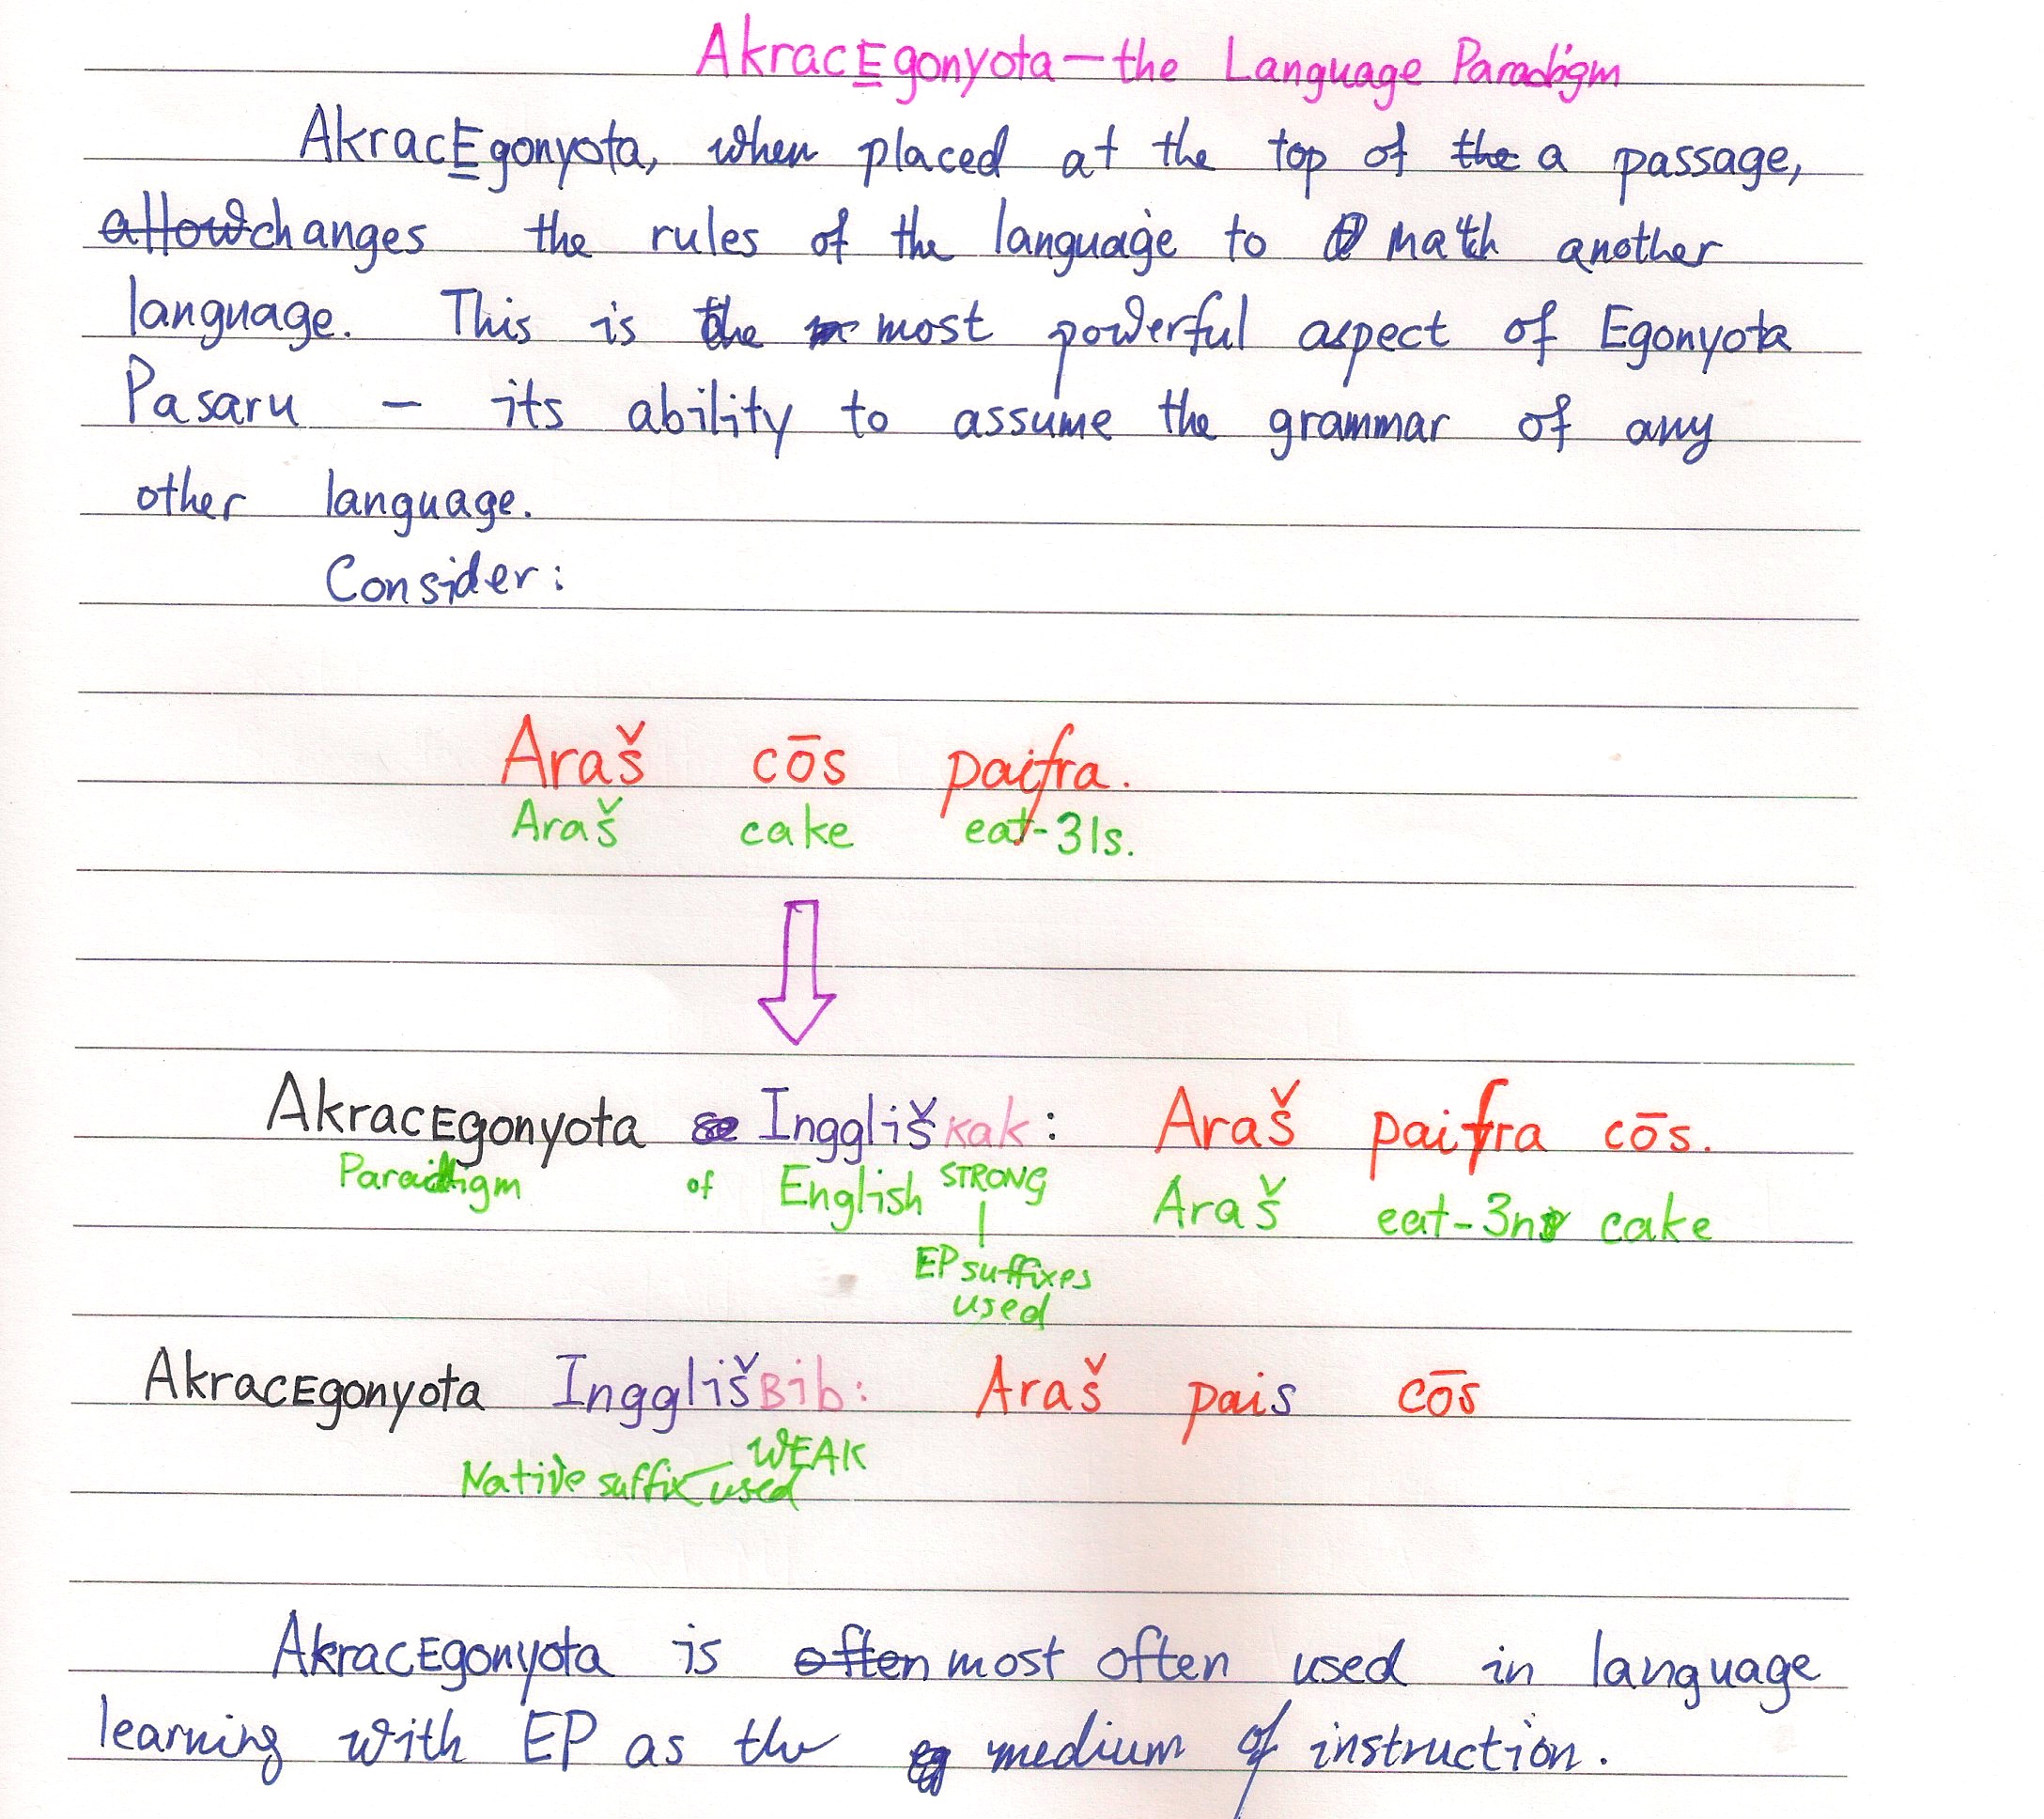 AkracEgonyota—the Language Paradigm
AkracEgonyota, when placed at the top of the a passage,
allow changes the rules of the language to math another
language. This is the most powerful aspect of Egonyota
Pasaru – its ability to assume the grammar of any
other language.
Consider:
Araš cōs paifra.
Araš cake eat-3ls.
AkracEgonyota Inggliškak: Araš paifra cōs.
Paradigm of English STRONG Araš eat-3n cake
EP suffixes
used
AkracEgonyota IngglišBib: Araš pais cōs
WEAK
Native suffix used
AkracEgonyota is often most often used in language
learning with EP as the medium of instruction.